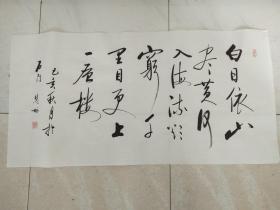 白日依山
尽黄河
入海流欲
窮千
里目更上
一层楼
己亥秋月於